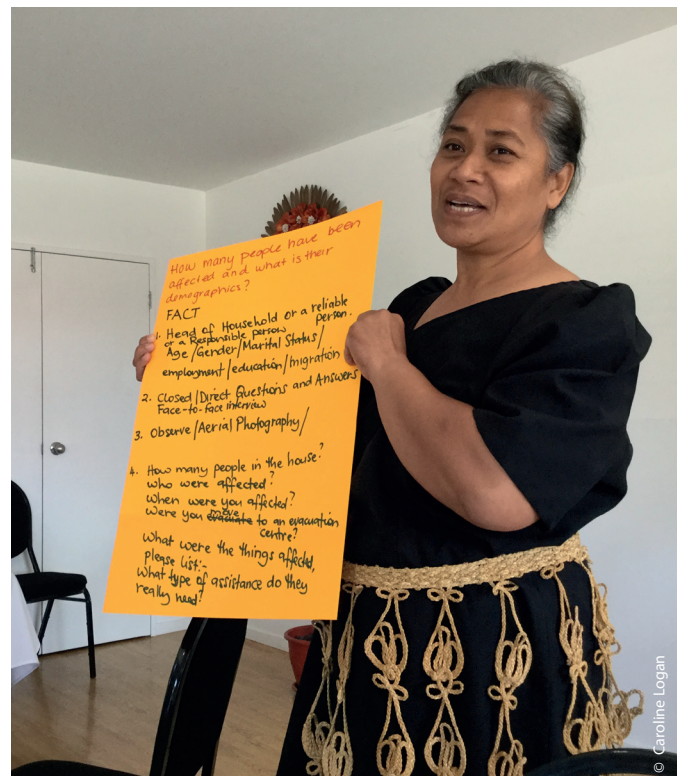 How many people have been
affected and what is their
demographics?
FACT
1. Head of Household or a reliable
or a Responsible person person.
Age/Gender/Marital Status/
employment/education/migration
2. Closed/Direct Questions and Answers
Face-to-Face interview
3. Observe/Aerial Photography/
4. How many people in the house?
who were affected?
When were you affected?
move
Were you evacuate to an evacuation
centre?
What were the things affected,
please list:-
What type of assistance do they
really need?
© Caroline Logan